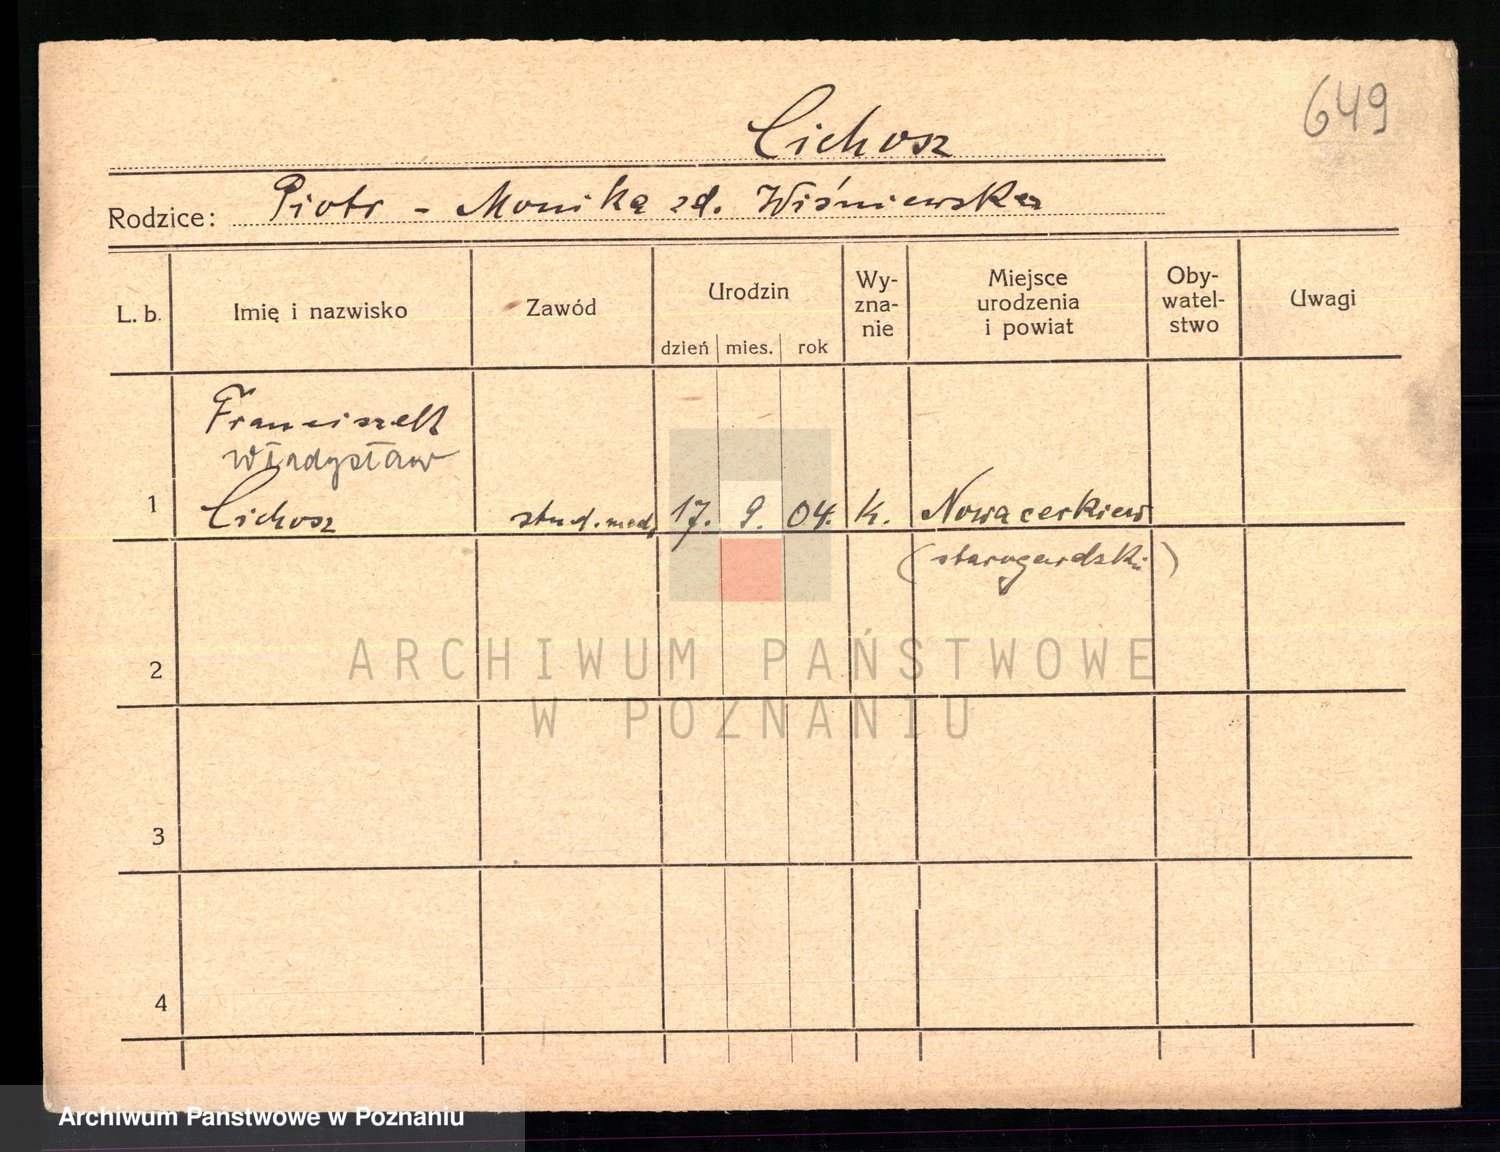 649
Cichosz
Rodzice: Piotr - Monika zd. Wiśniewska
L. b. Imię i nazwisko Zawód Urodzin Wy- Miejsce Oby- Uwagi
zna- urodzenia watel-
nie i powiat stwo
dzień mies. rok
Franciszek
Władysław
1 Cichosz stud. med. 17. 9. 04. k. Nowacerkiew
(starogardzki)
2
ARCHIWUM PAŃSTWOWE
W POZNANIU
3
4
Archiwum Państwowe w Poznaniu